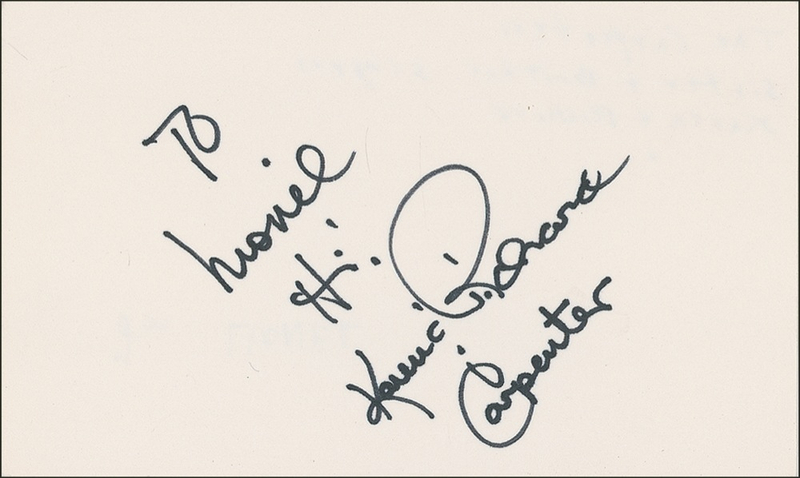 To
Lionel
Hi!
Karen & Richard
Carpenter